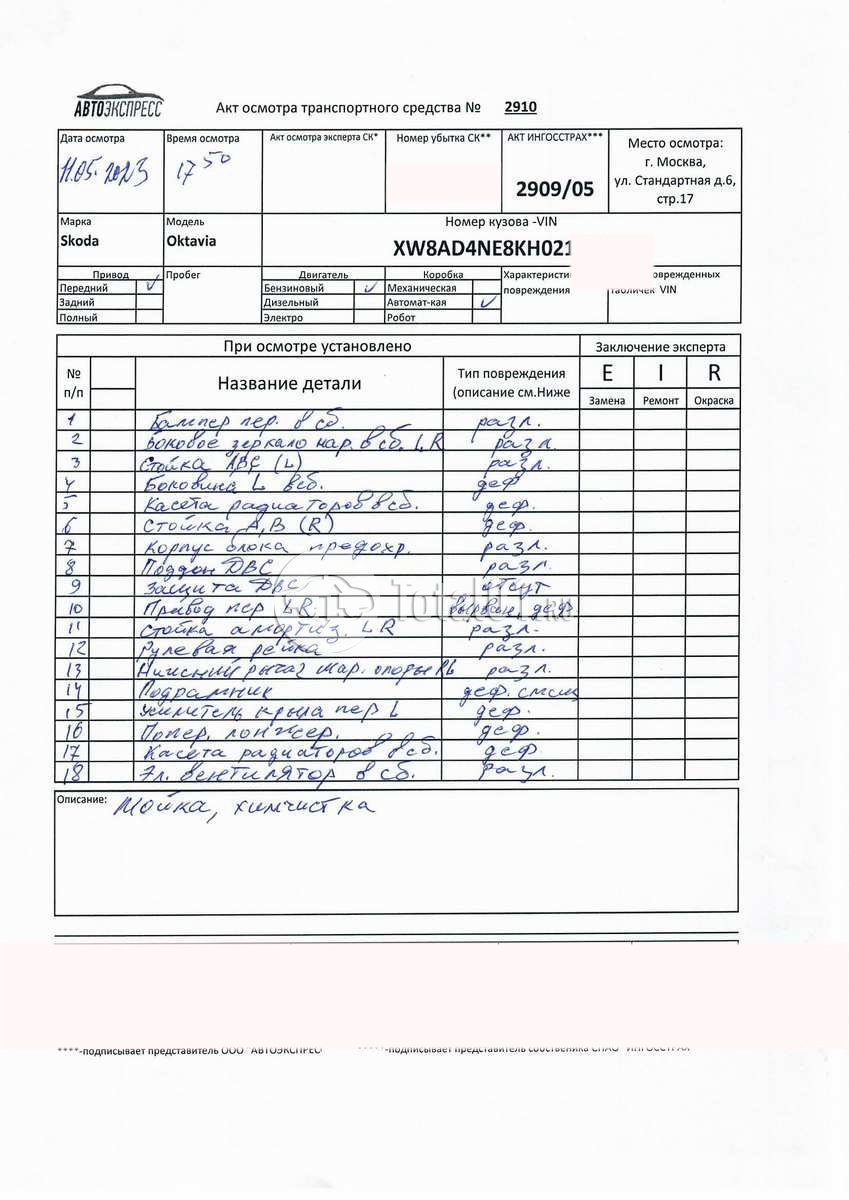 АВТОЭКСПРЕСС
Акт осмотра транспортного средства № 2910
Дата осмотра
11.05.2023
Время осмотра
17 50
Акт осмотра эксперта СК*
Номер убытка СК**
АКТ ИНГОССТРАХ***
2909/05
Место осмотра:
г. Москва,
ул. Стандартная д.6,
стр.17
Марка
Skoda
Модель
Oktavia
Номер кузова -VIN
XW8AD4NE8KH021
Привод
Передний ✓
Задний
Полный
Пробег
Двигатель
Бензиновый ✓
Дизельный
Электро
Коробка
Механическая
Автомат-кая ✓
Робот
повреждения
VIN
При осмотре установлено
Заключение эксперта
№ п/п
Название детали
Тип повреждения
(описание см.Ниже
E I R
Замена Ремонт Окраска
1 Бампер пер. в сб. разл.
2 Боковое зеркало нар. в сб. L, R разл.
3 Стойка ABC (L) разл.
4 Боковина L в сб. деф
5 Касета радиаторов в сб. деф.
6 Стойка A, B (R) деф.
7 Корпус блока предохр. разл.
8 Поддон ДВС разл.
9 Защита ДВС отсут
10 Привод пер LR вырван, деф
11 Стойка амортиз. L R разл.
12 Рулевая рейка разл.
13 Нижний рычаг шар. опоры разл.
14 Подрамник деф. смещ
15 Усилитель крыла пер L деф.
16 Попер. лонжер. деф.
17 Касета радиаторов в сб. деф
18 Эл. вентилятор в сб. разл.
TotalOut.RU
Описание: Мойка, химчистка
****-подписывает представитель ООО "АВТОЭКСПРЕС
*****-подписывает представитель собственика СПАО "ИНГОССТРАХ